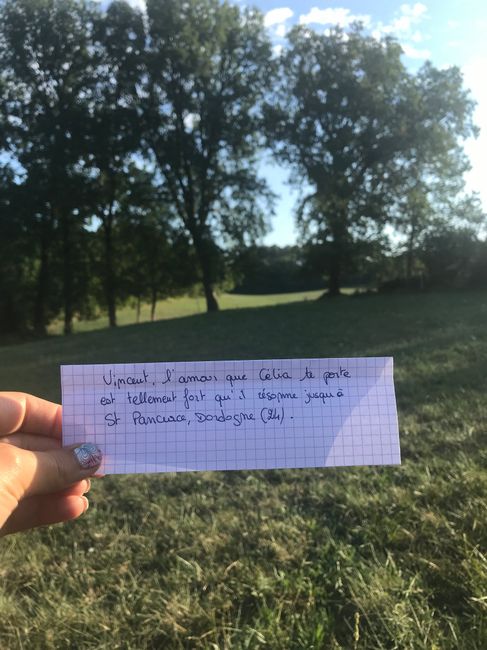 Vincent, l'amour que Célia te porte
est tellement fort qu'il résonne jusqu'à
St Pancrace, Dordogne (24).